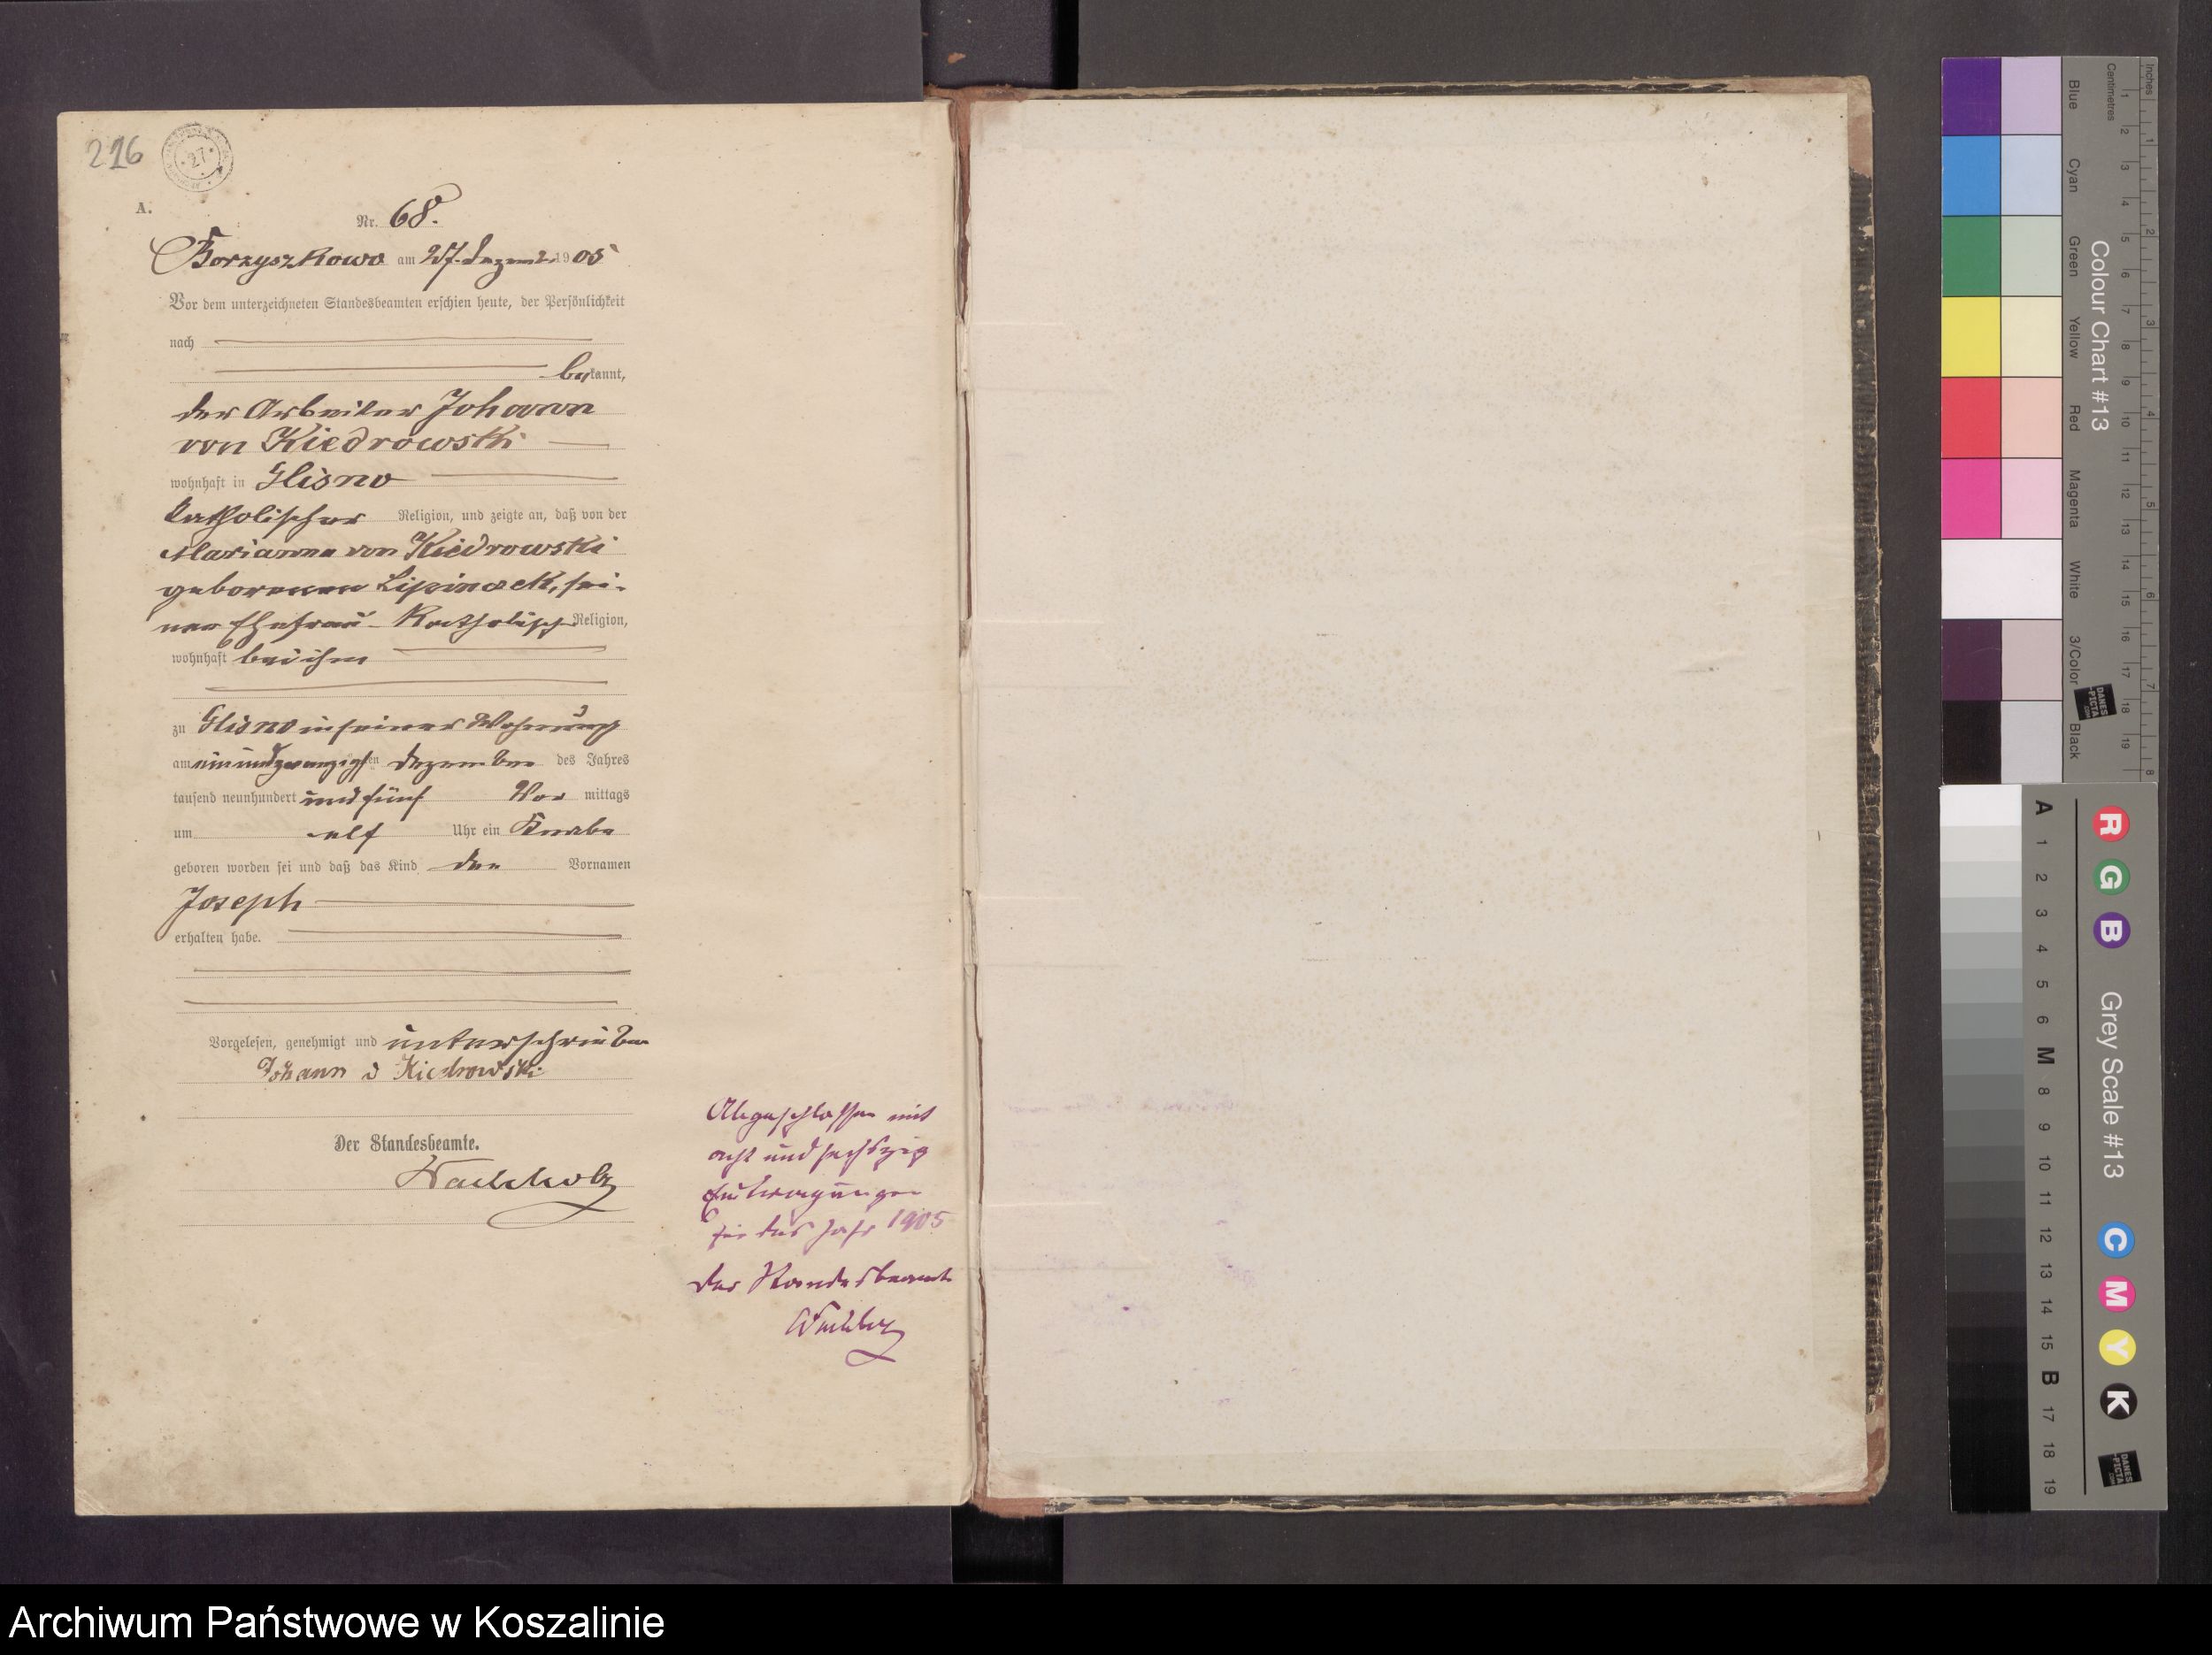 216
27
A.
Nr. 68.
Borzyszkowo am 27. Dezemb. 1905
Vor dem unterzeichneten Standesbeamten erschien heute, der Persönlichkeit
nach
bekannt,
der Arbeiter Johann
von Kiedrowski
wohnhaft in Glisno
katholischer Religion, und zeigte an, daß von der
Marianna von Kiedrowski
geborenen Lipinsck, sei-
ner Ehefrau katholisch Religion,
wohnhaft bei ihm
zu Glisno in seiner Wohnung
am einundzwanzigsten Dezember des Jahres
tausend neunhundert und fünf Vor mittags
um elf Uhr ein Knabe
geboren worden sei und daß das Kind den Vornamen
Joseph
erhalten habe.
Vorgelesen, genehmigt und unterschrieben
Johann v Kiedrowski
Der Standesbeamte.
Wachholz
Abgeschlossen mit
acht und sechszig
Eintragungen
für das Jahr 1905
Der Standesbeamte
Wachholz
Inches
Centimetres
Colour Chart #13
Blue
Cyan
Green
Yellow
Red
Magenta
White
3/Color
Black
DANES
-PICTA
.COM
1 2 3 4 5 6 7 8 9 10 11 12 13 14 15 16 17 18 19
1 2 3 4 5 6 7 8
A 1 2 3 4 5 6 M 8 9 10 11 12 13 14 15 B 17 18 19
R G B
Grey Scale #13
C M Y K
DANES
-PICTA
.COM
Archiwum Państwowe w Koszalinie